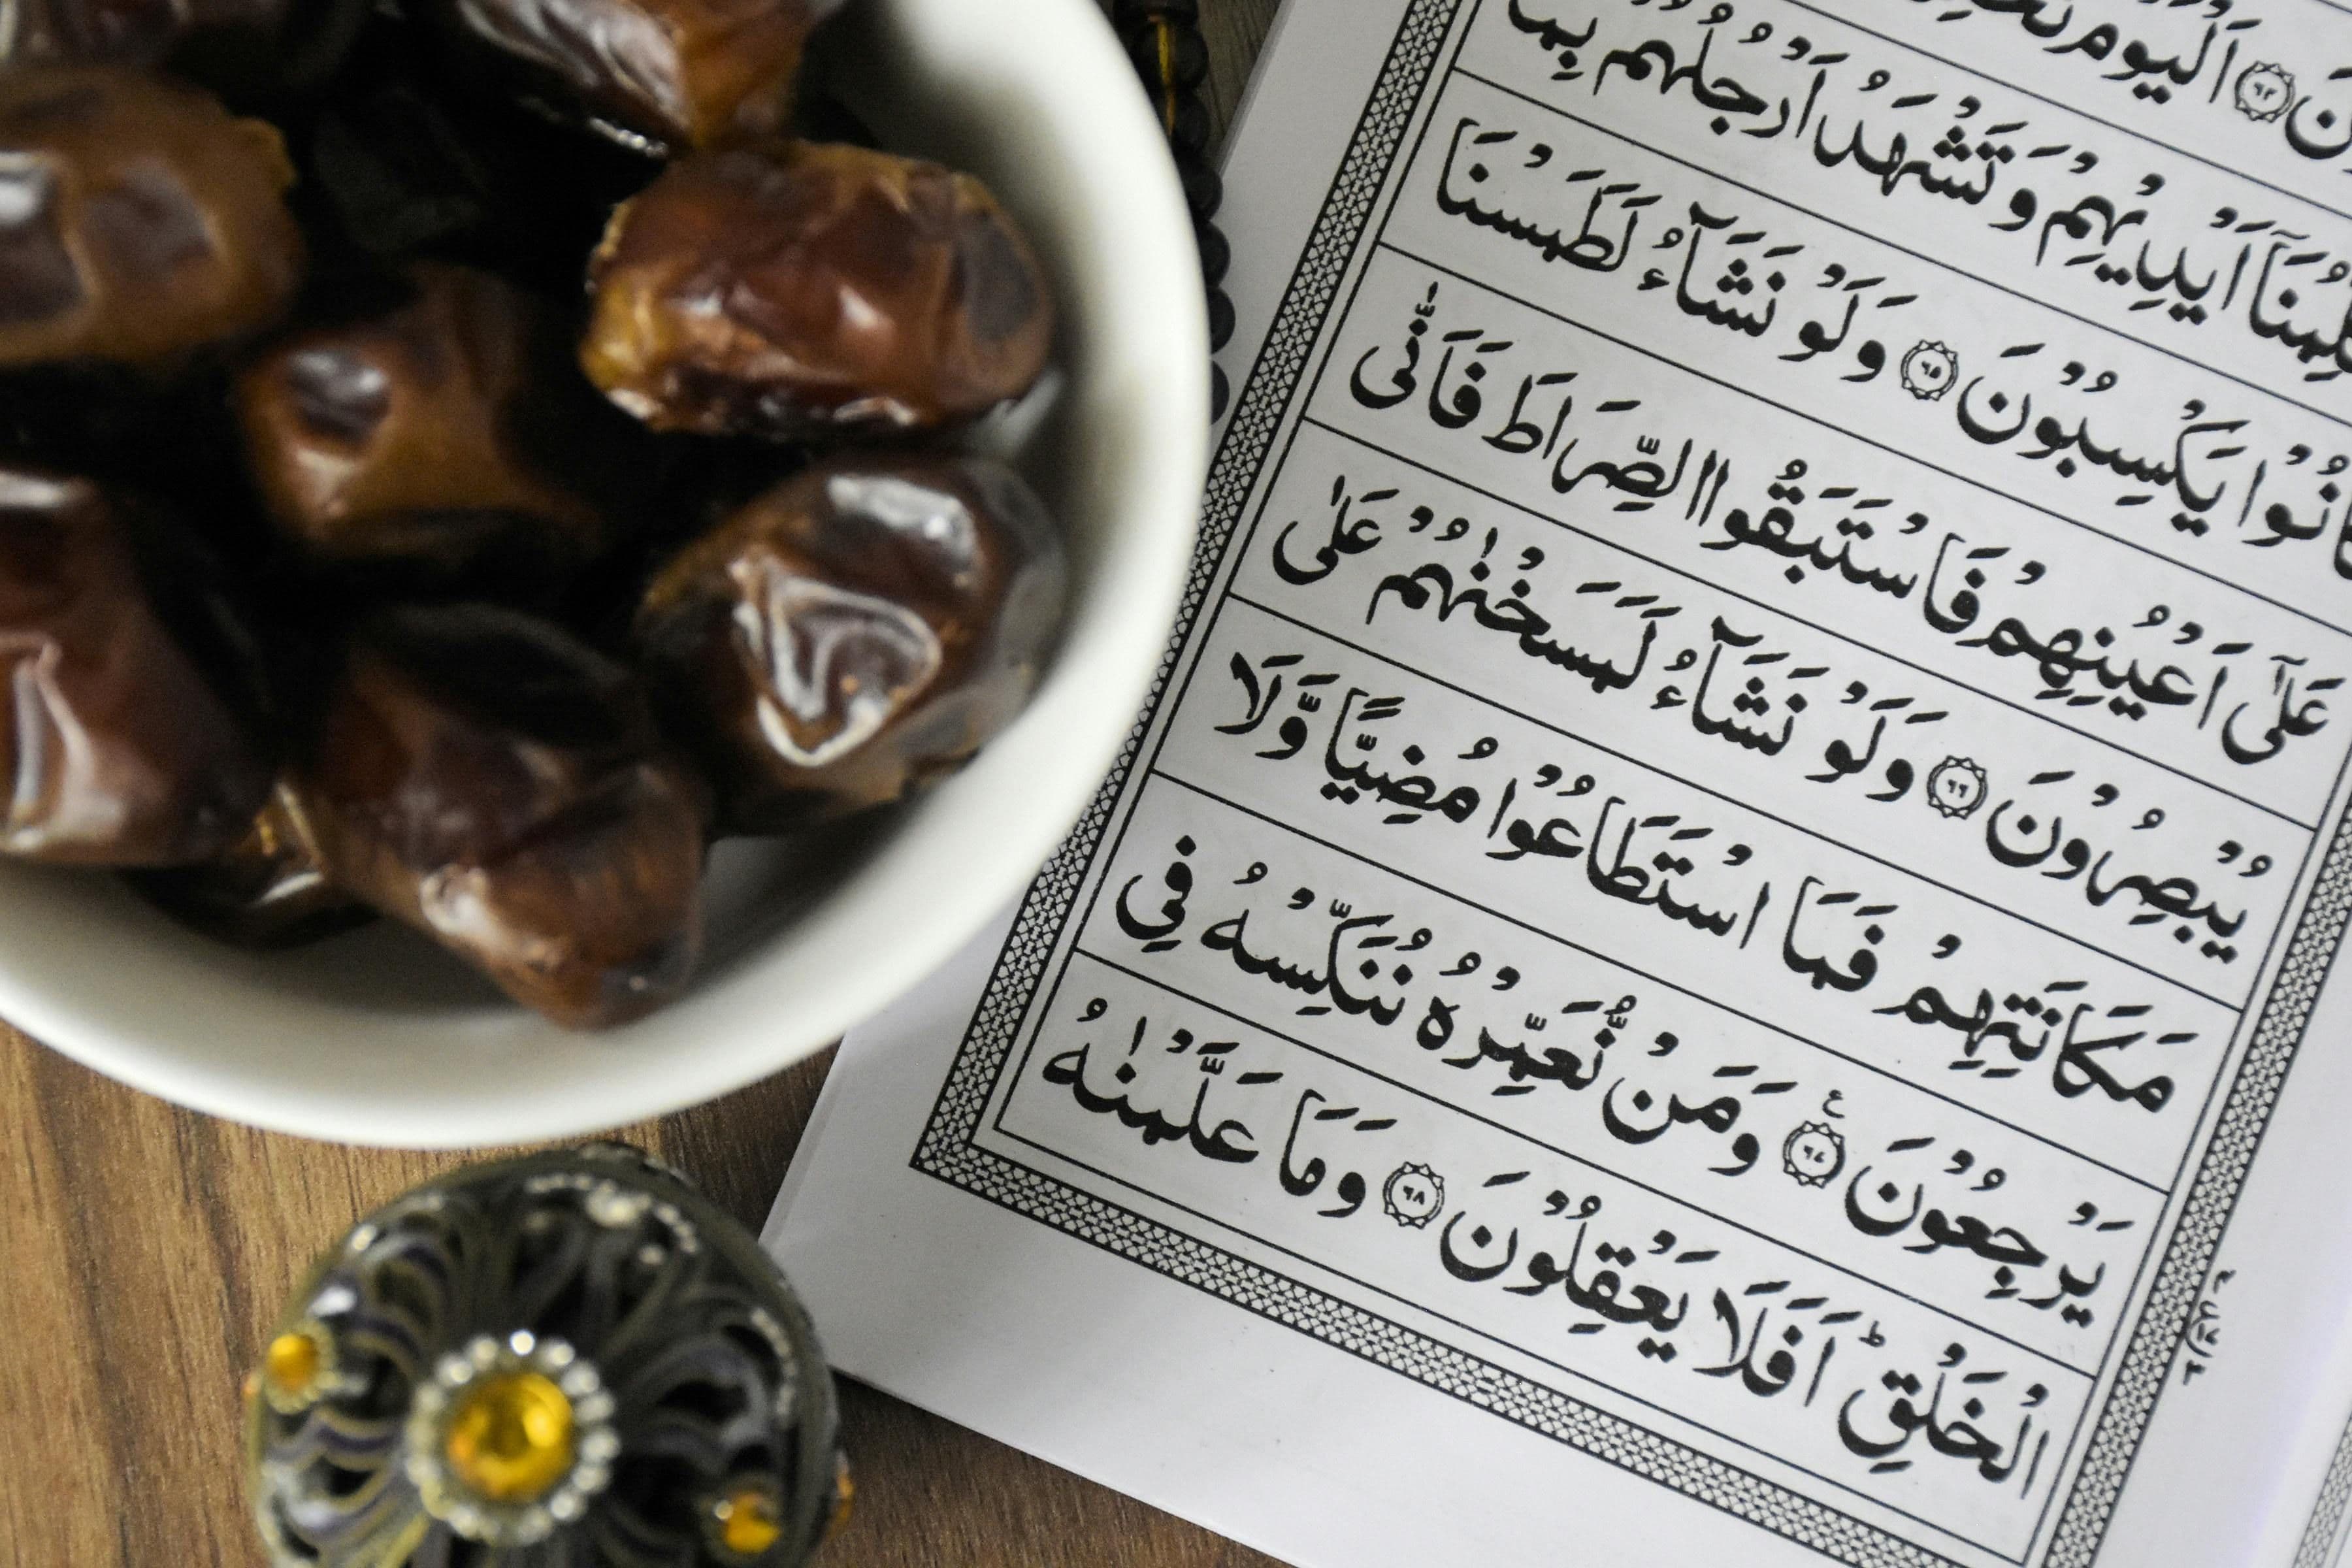 اَلْيَوْمَ ﴿٦٤﴾
اَيْدِيْهِمْ وَتَشْهَدُ اَرْجُلُهُمْ بِمَا
يَكْسِبُوْنَ ﴿٦٥﴾ وَلَوْ نَشَآءُ لَطَمَسْنَا
عَلٰٓى اَعْيُنِهِمْ فَاسْتَبَقُوا الصِّرَاطَ فَاَنّٰى
يُبْصِرُوْنَ ﴿٦٦﴾ وَلَوْ نَشَآءُ لَمَسَخْنٰهُمْ عَلٰى
مَكَانَتِهِمْ فَمَا اسْتَطَاعُوْا مُضِيًّا وَّلَا
يَرْجِعُوْنَ ﴿٦٧﴾ۧ وَمَنْ نُّعَمِّرْهُ نُنَكِّسْهُ فِى
الْخَلْقِؕ اَفَلَا يَعْقِلُوْنَ ﴿٦٨﴾ وَمَا عَلَّمْنٰهُ